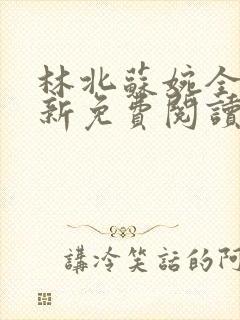 林北蘇婉全
新免費閱讀
講冷笑話的阿